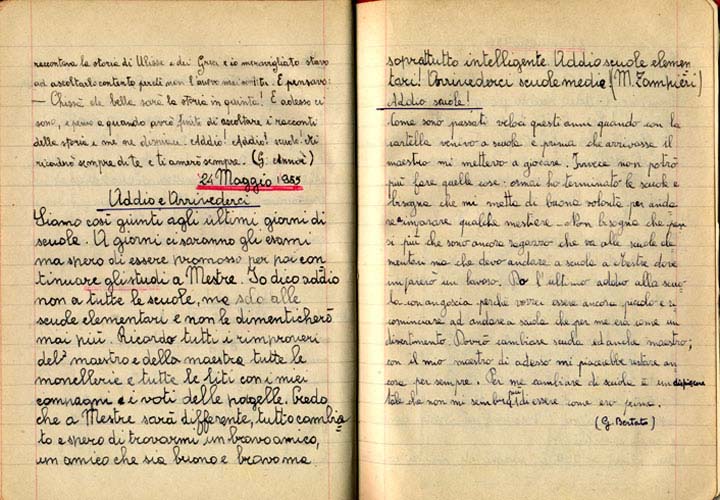 raccontava la storia di Ulisse e dei Greci e io meravigliato stavo
ad ascoltarlo contento perché non l'avevo mai sentita. E pensavo:
— Chissà che bella sarà la storia in quinta! E adesso ci
sono, e penso a quando avrò finito di ascoltare i racconti
della storia e me ne Addio! Addio! scuola! Ti
ricadrò sempre di te e ti amerò sempre. (G.
24 Maggio 1955
Addio e Arrivederci
Siamo così giunti agli ultimi giorni di
scuola. A giorni ci saranno gli esami
ma spero di essere promosso per poi con
tinuare gli studi a Mestre. Io dico addio
non a tutte le scuole, ma solo alle
scuole elementari e non le dimenticherò
mai più. Ricordo tutti i rimproveri
del maestro e della maestra tutte le
monellerie e tutte le liti con i miei
compagni e i voti delle pagelle. Credo
che a Mestre sarà differente, tutto cambia
to e spero di trovarmi un bravo amico,
un amico che sia buono e bravo ma
soprattutto intelligente. Addio scuole elemen
tari! Arrivederci scuole medie. (M. Zampieri)
Addio scuole!
Come sono passati veloci questi anni quando con la
cartella venivo a scuola e prima che arrivasse il
maestro mi mettevo a giocare. Invece non potrò
più fare quelle cose: ormai ho terminato le scuole e
bisogna che mi metta di buona volontà per anda
re imparare qualche mestiere. Non bisogna che pen
si più che sono ancora ragazzo che va alle scuole ele
mentari ma che devo andare a scuola a Mestre dove
imparerò un lavoro. Do l'ultimo addio alla scuo
la con angoscia perché vorrei essere ancora piccolo e ri
cominciare ad andare a scuola che per me era come un
divertimento. Dovrò cambiare scuola ed anche maestro;
con il mio maestro di adesso mi piacerebbe restare an
cora per sempre. Per me cambiare di scuola è un dispiacere
tale che non mi sembra più di essere come ero prima.
(G. Bertato)